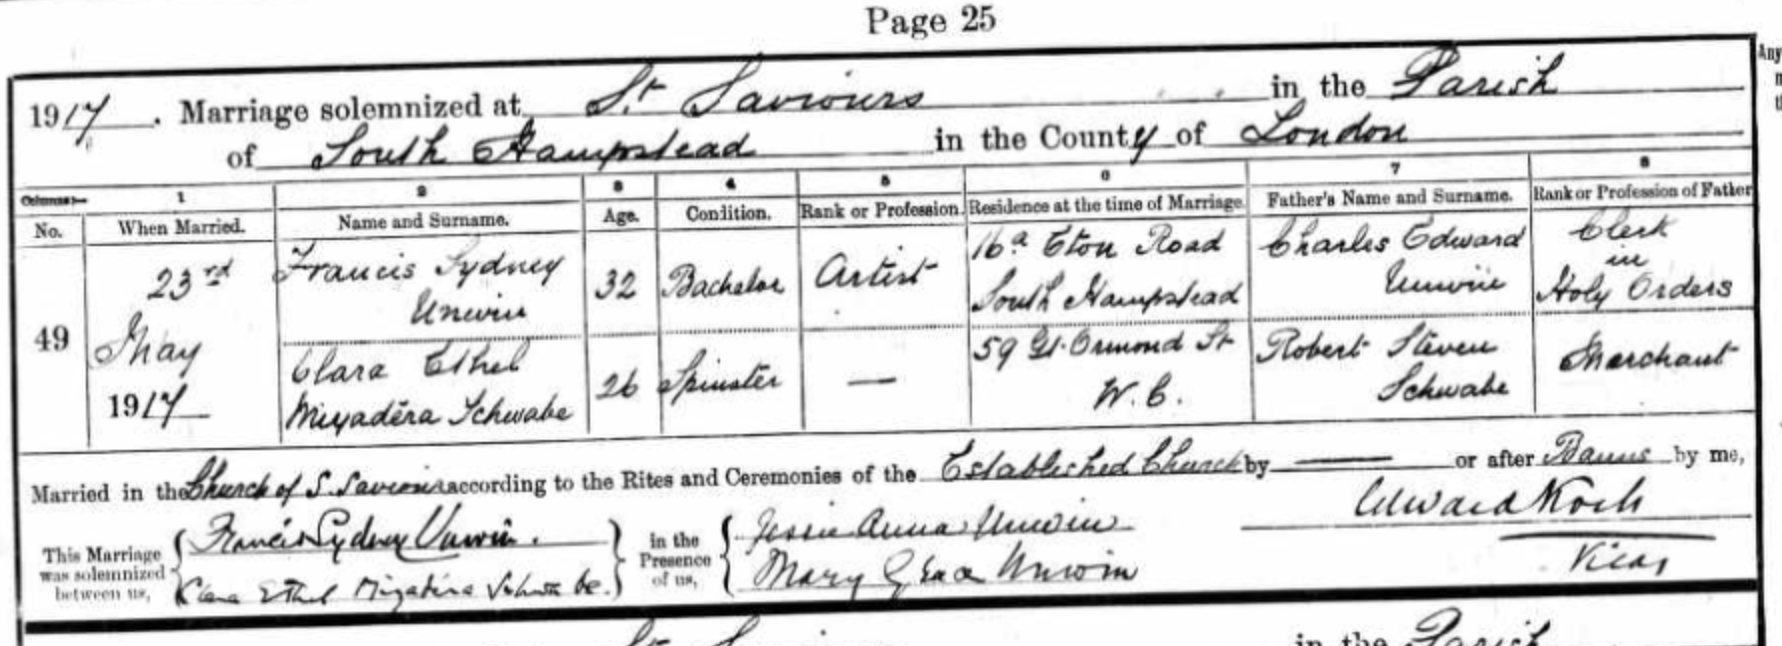 Page 25
1917. Marriage solemnized at St Saviours in the Parish
of South Hampstead in the County of London
Columns:— 1 2 3 4 5 6 7 8
No. When Married. Name and Surname. Age. Condition. Rank or Profession. Residence at the time of Marriage. Father's Name and Surname. Rank or Profession of Father
49 23rd May 1917
Francis Sydney Unwin 32 Bachelor Artist 16a Eton Road South Hampstead Charles Edward Unwin Clerk in Holy Orders
Clara Ethel Miyadēra Schwabe 26 Spinster — 59 Gt. Ormond St W.C. Robert Steven Schwabe Merchant
Married in the Church of S. Saviours according to the Rites and Ceremonies of the Established Church by — or after Banns by me,
This Marriage was solemnized between us, { Francis Sydney Unwin. } in the Presence of us, { Jessie Anna Unwin Edward Koch
Clara Ethel Miyadera Schwabe. Mary Grace Unwin Vicar
Any
St in the Parish